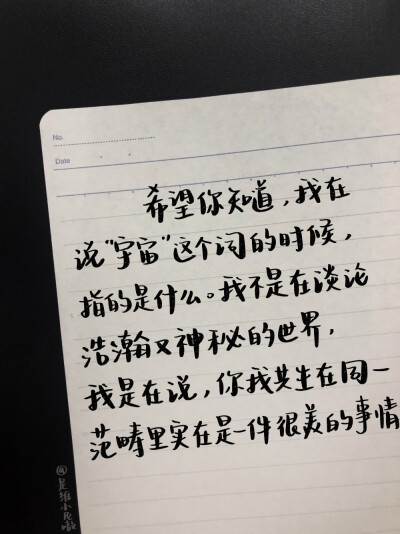 No.
Date
希望你知道，我在
说“宇宙”这个词的时候，
指的是什么。我不是在谈论
浩瀚又神秘的世界，
我是在说，你我共生在同一
范畴里实在是一件很美的事情